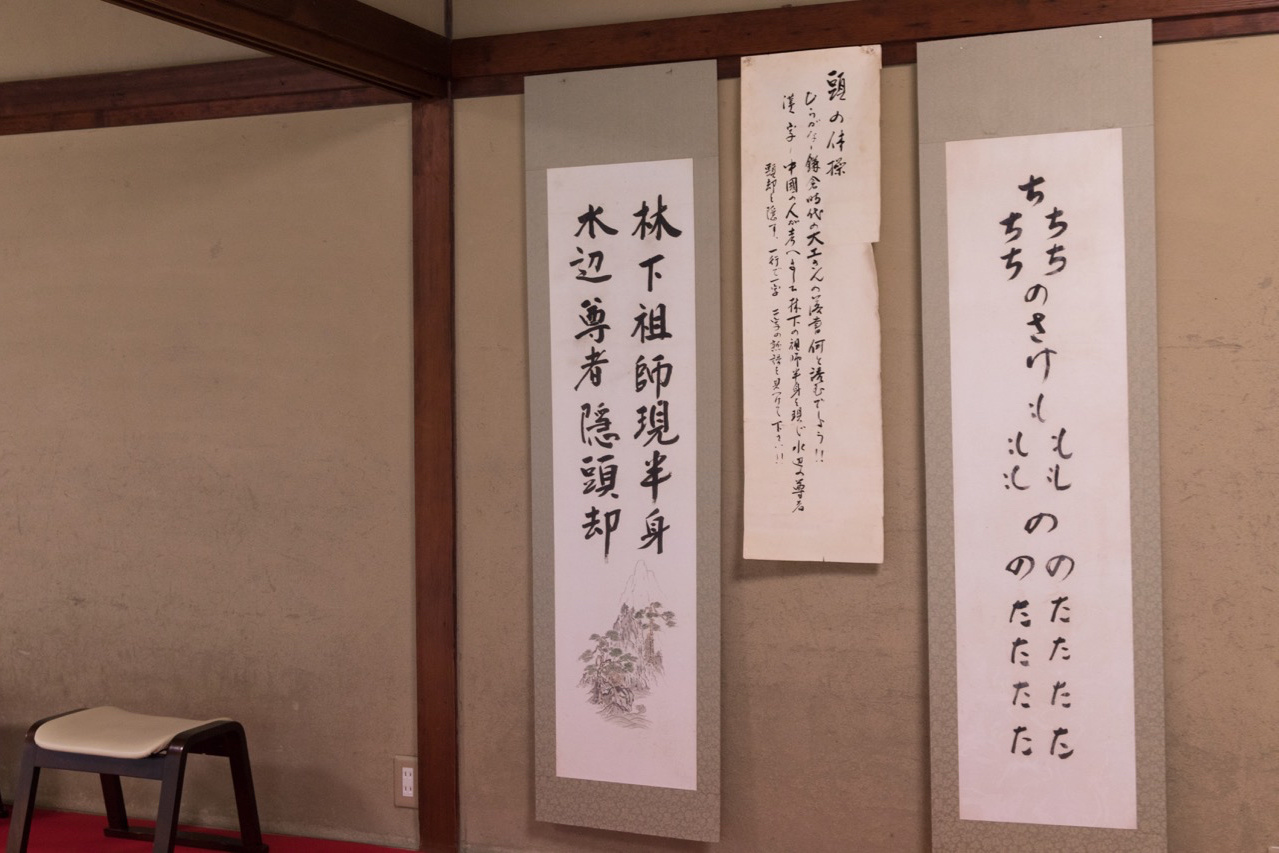 ち
ちち
ちち
のさけ
も
もも
もも
の
のたたたた
のたたたた
頭の体操
ひらがな、鎌倉時代の大工さんの落書 何と読むでしょう!!
漢字、中國の人が考へました 林下の祖師半身を現じ水辺の尊者
頭却を隠す、一行で一字 二字の熟語を見つけて下さい!!
林下祖師現半身
水辺尊者隠頭却